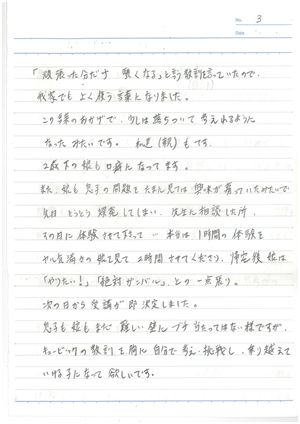 No. 3
Date
「頑張った分だけ 賢くなる」と言う教訓を言っていたので、
我家でも よく使う言葉になりました。
この言葉のおかげで、少しは落ちついて 考えれるように
なった みたいです。 私達(親)も です。
2歳下の娘も口癖になってます。
また、娘も 息子の問題を たまに見ては 興味が募っていたみたいで
先日 とうとう 爆発してしまい、先生に相談した所、
その日に体験させて下さって… 本当は1時間の体験を
ヤル気満々の娘を見て 2時間させてくださり、帰宅後 娘は
「やりたい!」「絶対ガンバル」との一点張り。
次の日から受講が 即決定しました。
息子も娘もまだ 難しい壁に ブチ当たってはない様ですが、
キュービックの教訓を胸に 自分で考え・挑戦し、乗り越えて
いける子になって 欲しいです。